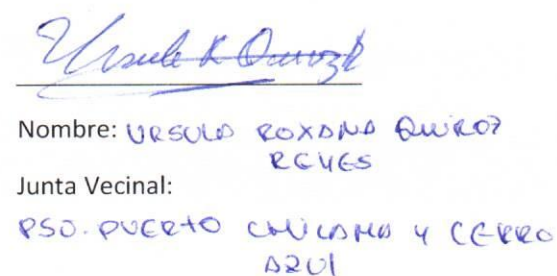 Ursula R Quiroz R
Nombre: URSULA ROXANA QUIROZ
REYES
Junta Vecinal:
PSO. PUERTO CHICAMA Y CERRO
AZUL